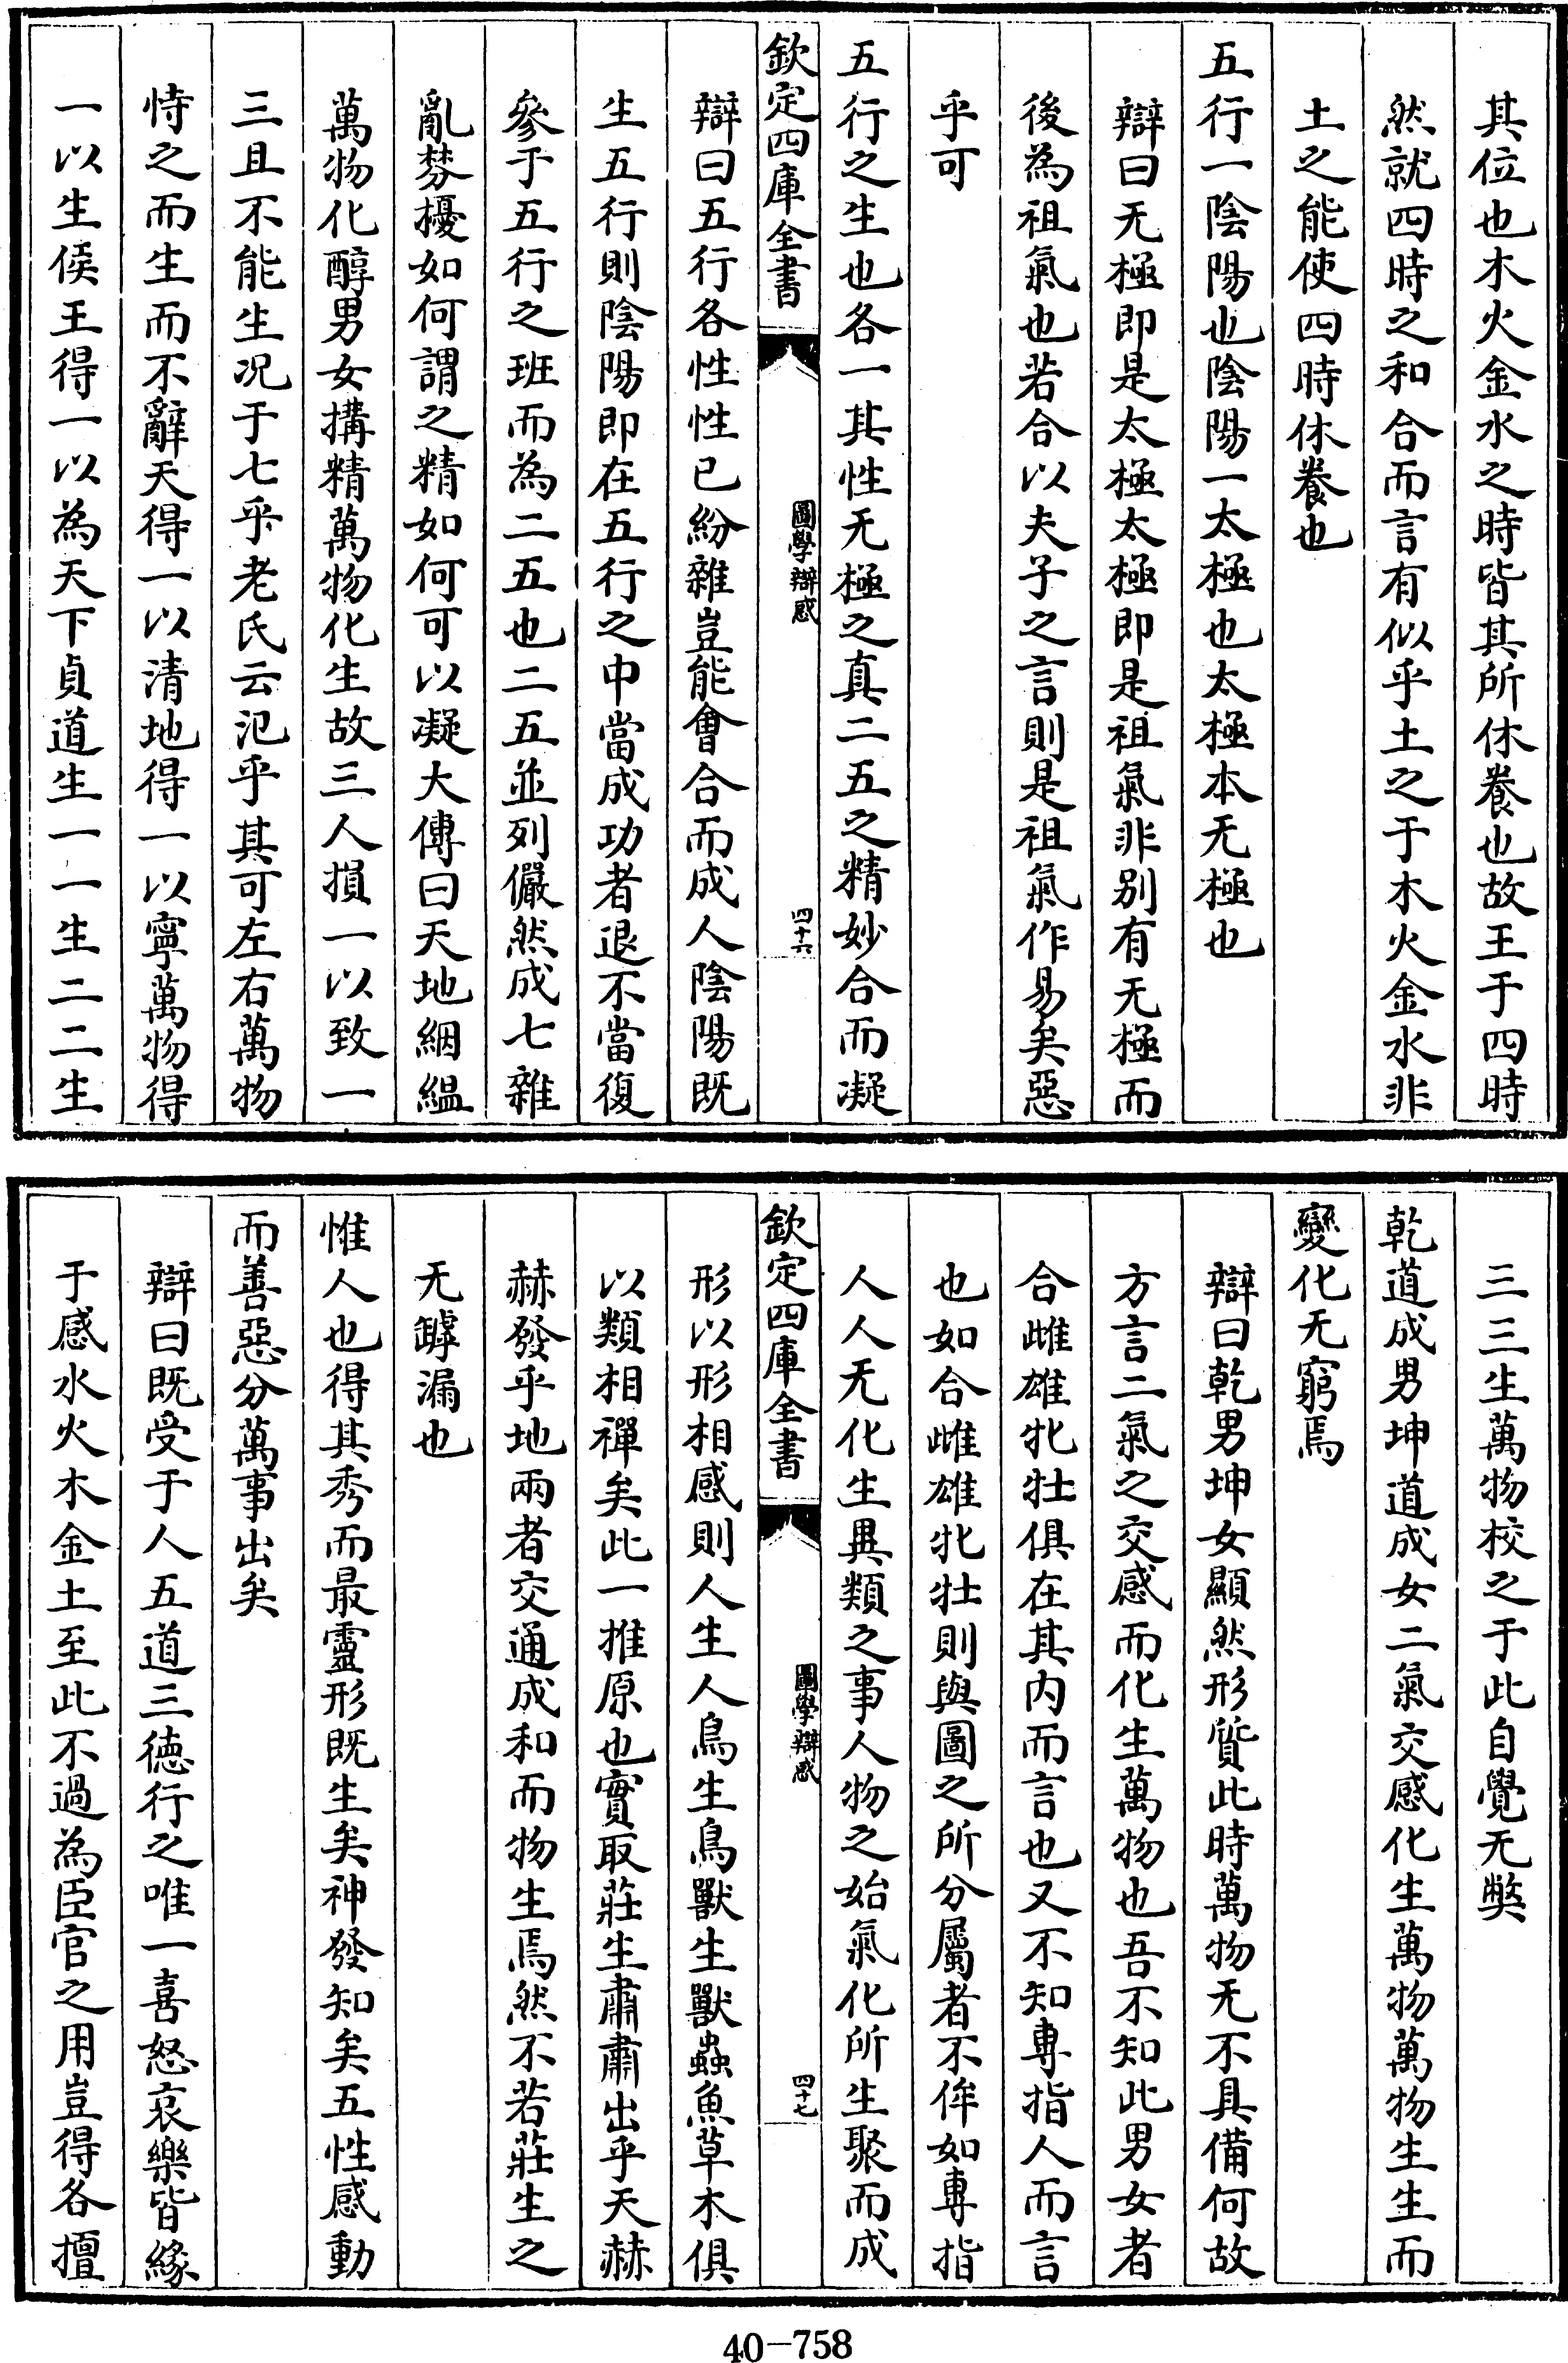 其位也木火金水之時皆其所休養也故王于四時
然就四時之和合而言有似乎土之于木火金水非
土之能使四時休養也
五行一陰陽也陰陽一太極也太極本无極也
辯曰无極即是太極太極即是祖氣非别有无極而
後為祖氣也若合以夫子之言則是祖氣作易矣惡
乎可
五行之生也各一其性无極之真二五之精妙合而凝
欽定四庫全書
圖學辯惑
四十六
辯曰五行各性性已紛雜豈能會合而成人陰陽既
生五行則陰陽即在五行之中當成功者退不當復
參于五行之班而為二五也二五並列儼然成七雜
亂棼擾如何謂之精如何可以凝大傳曰天地絪縕
萬物化醇男女搆精萬物化生故三人損一以致一
三且不能生况于七乎老氏云氾乎其可左右萬物
恃之而生而不辭天得一以清地得一以寧萬物得
一以生侯王得一以為天下貞道生一一生二二生
三三生萬物校之于此自覺无獘
乾道成男坤道成女二氣交感化生萬物萬物生生而
變化无窮焉
辯曰乾男坤女顯然形質此時萬物无不具備何故
方言二氣之交感而化生萬物也吾不知此男女者
合雌雄牝牡俱在其内而言也又不知專指人而言
也如合雌雄牝牡則與圖之所分屬者不侔如專指
人人无化生異類之事人物之始氣化所生聚而成
欽定四庫全書
圖學辯惑
四十七
形以形相感則人生人鳥生鳥獸生獸蟲魚草木俱
以類相禪矣此一推原也實取莊生肅肅出乎天赫
赫發乎地兩者交通成和而物生焉然不若莊生之
无罅漏也
惟人也得其秀而最靈形既生矣神發知矣五性感動
而善惡分萬事出矣
辯曰既受于人五道三徳行之唯一喜怒哀樂皆緣
于感水火木金土至此不過為臣官之用豈得各擅
40-758